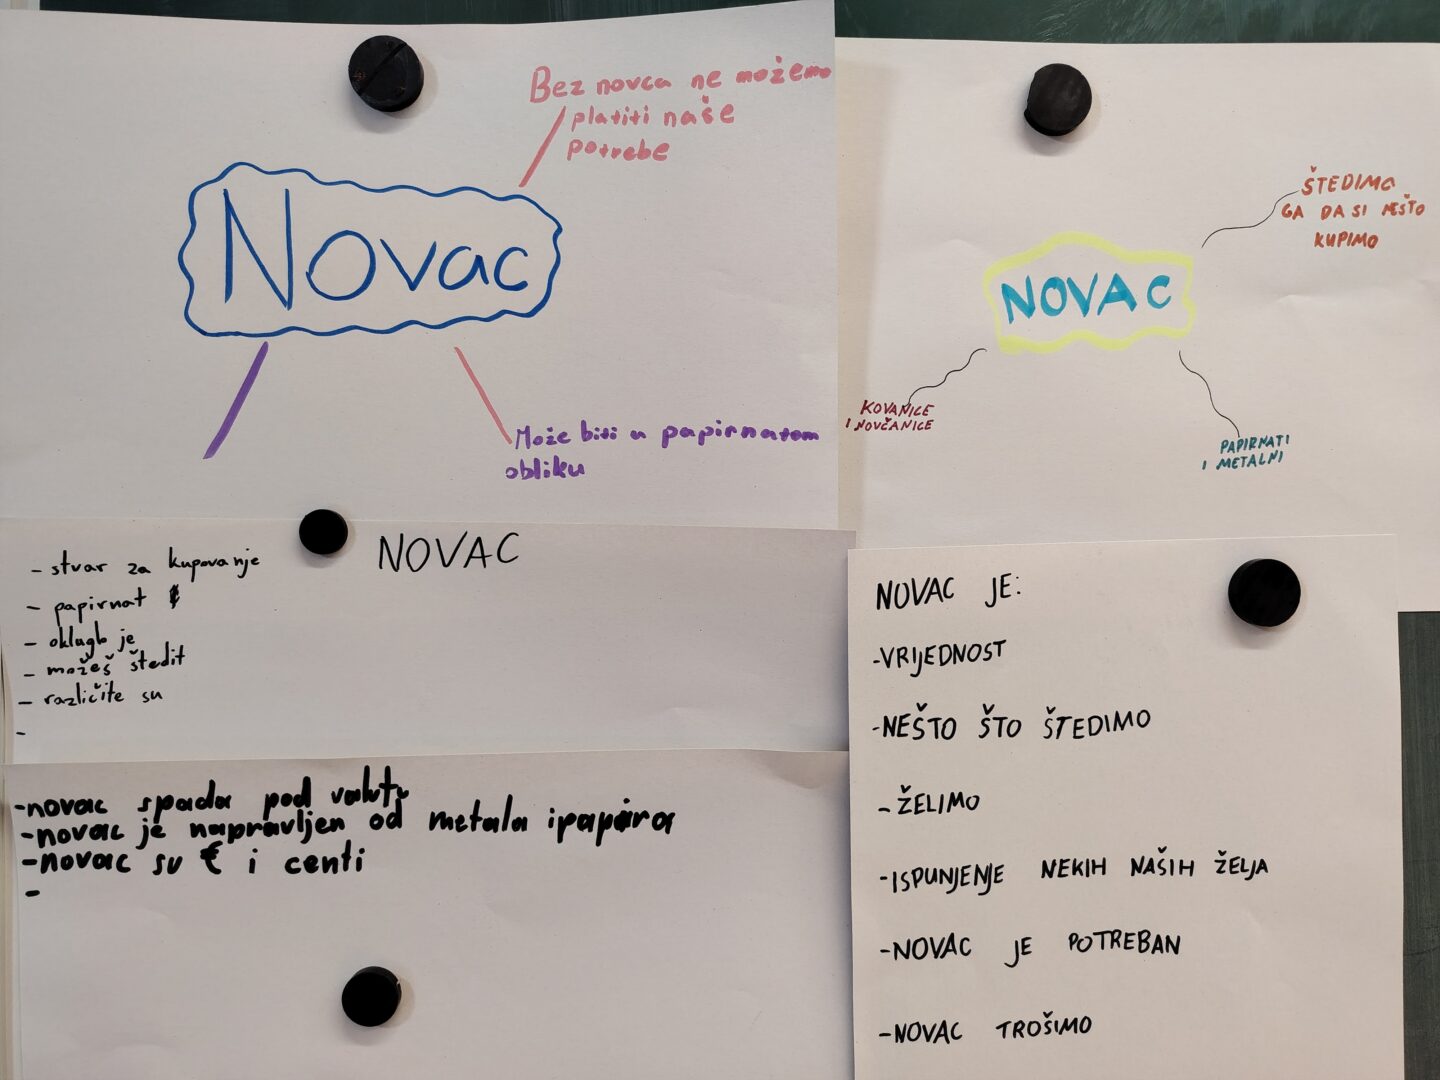 Bez novca ne možemo
platiti naše
potrebe
Novac
Može biti u papirnatom
obliku
ŠTEDIMO
GA DA SI NEŠTO
KUPIMO
NOVAC
KOVANICE
I NOVČANICE
PAPIRNATI
I METALNI
NOVAC
- stvar za kupovanje
- papirnat
- okluglo je
- možeš štedit
- različite su
-
-novac spada pod valutu
-novac je napravljen od metala i papira
-novac su € i centi
-
NOVAC JE:
-VRIJEDNOST
-NEŠTO ŠTO ŠTEDIMO
-ŽELIMO
-ISPUNJENJE NEKIH NAŠIH ŽELJA
-NOVAC JE POTREBAN
-NOVAC TROŠIMO